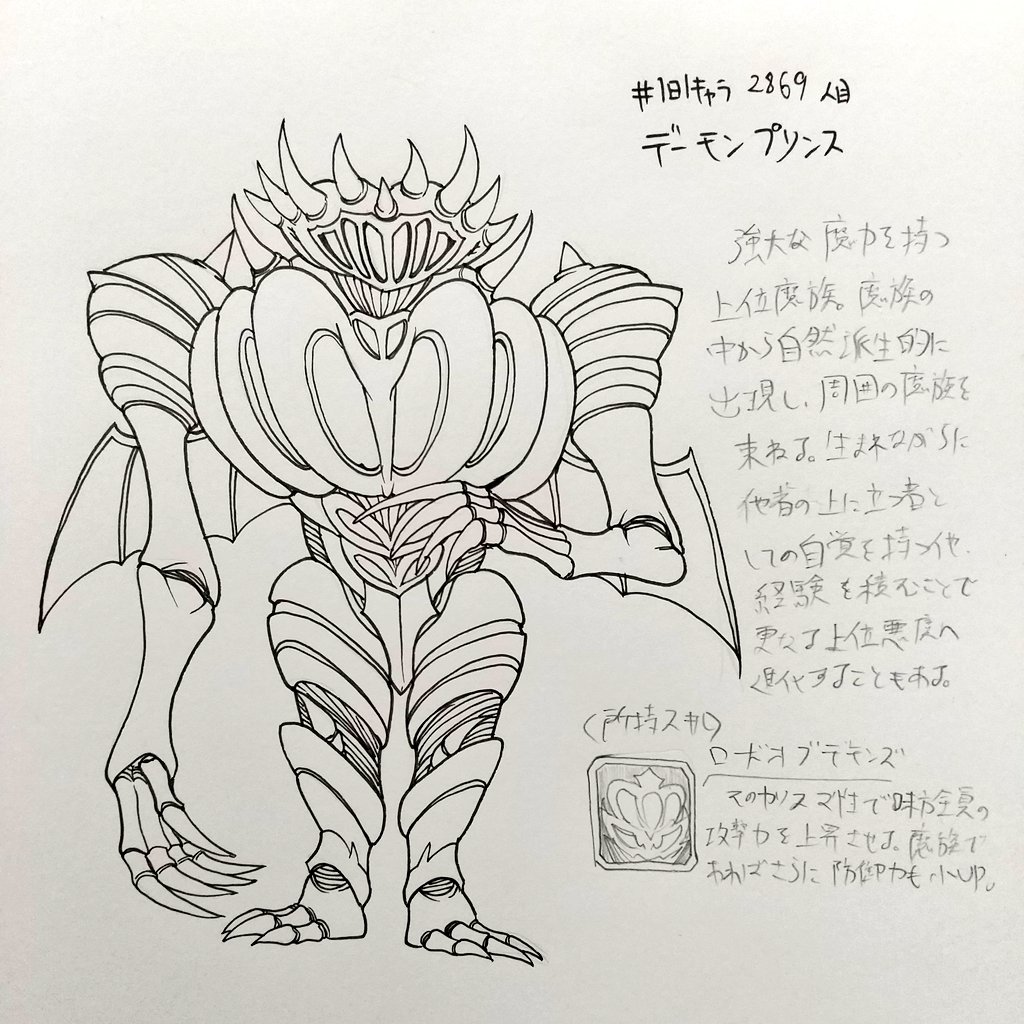 #1日1キャラ 2869 人目
デーモンプリンス
強大な魔力を持つ
上位魔族。魔族の
中から自然派生的に
出現し、周囲の魔族を
束ねる。生まれながらに
他者の上に立つ者と
しての自覚を持つ他、
経験を積むことで
更なる上位悪魔へ
進化することもある。
〈所持スキル〉
ロードオブデーモンズ
そのカリスマ性で味方全員の
攻撃力を上昇させる。魔族で
あればさらに防御力も小UP。